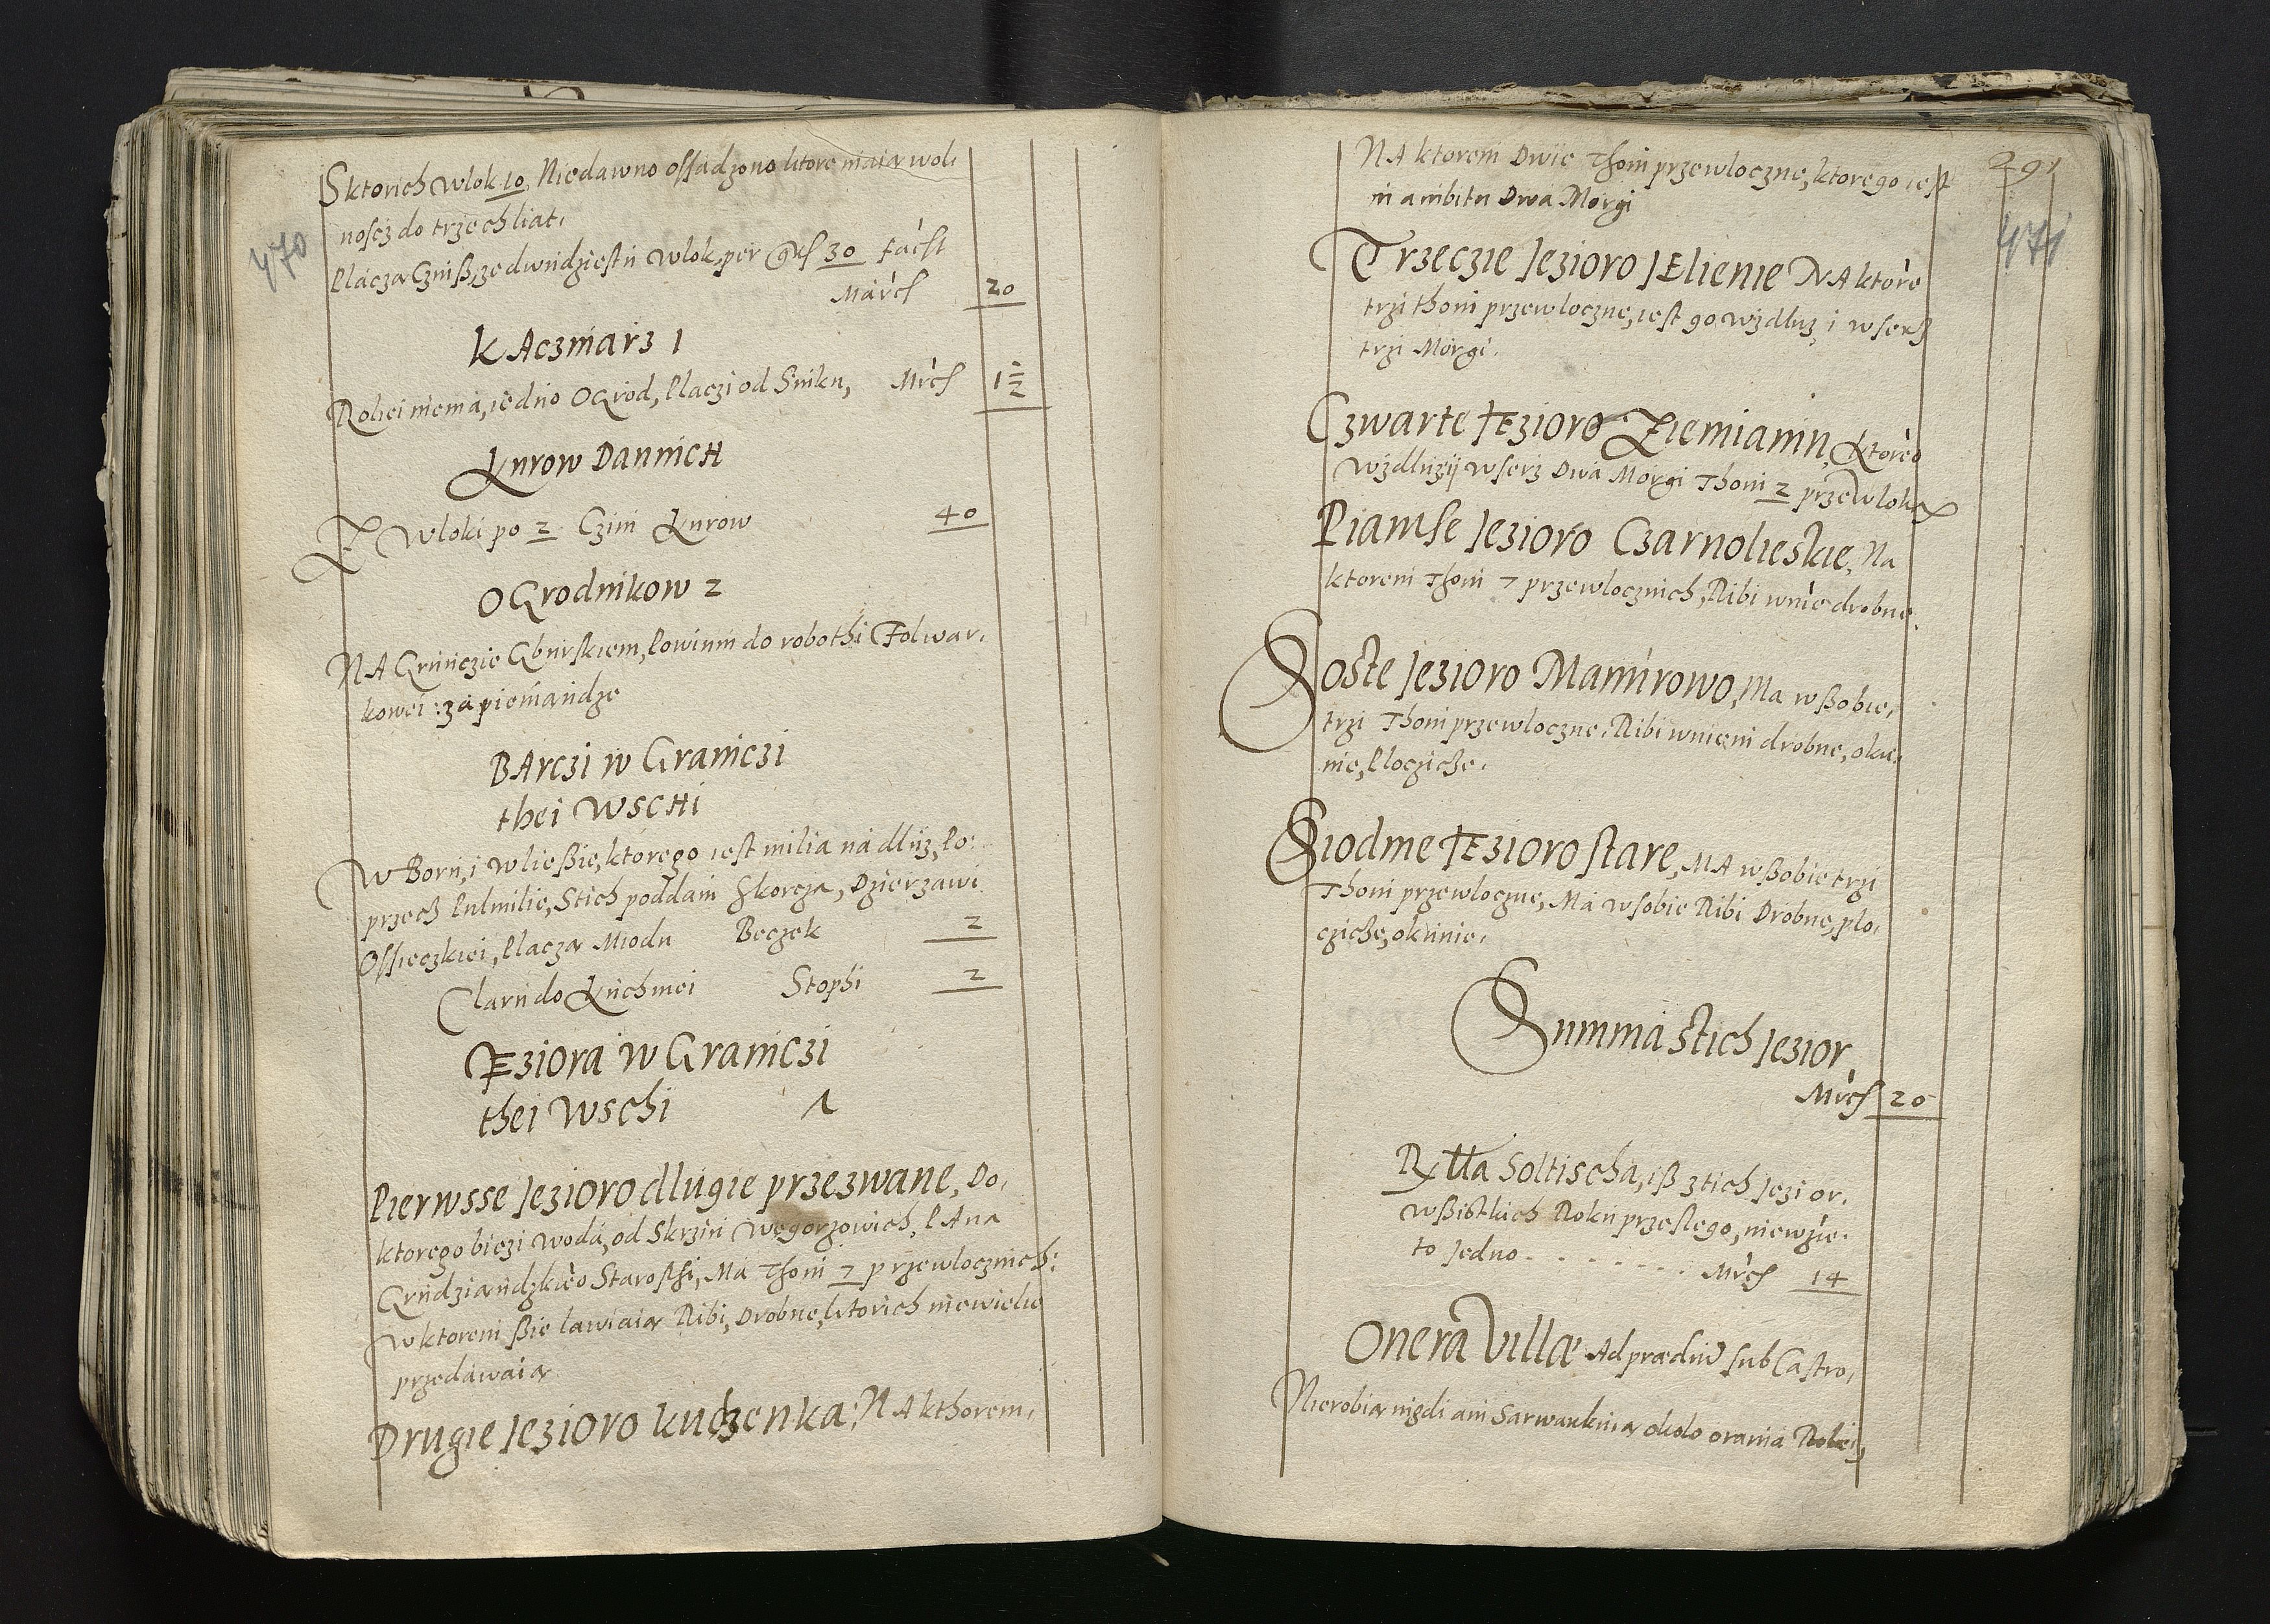 470
Sktorich Wlok 10, Niedawno ossadzono ktore maia wol,
noscz do trzech liat,
Placza Czinß, ze dwudziestu Wlok, per grß 30 facit
March 20
KAczmarz 1
Roliei niema, iedno OGrod, Placzi od Sinku, Mrcß 1 1/2
Kurow DannicH
Z Wloki po 2 Czini Kurow 40
OGrodnikow 2
NA Grunczie Gburskiem, Powinni do robothi Folwar,
kowei : za pieniandze
BArczi w Graniczi
thei WSCHi
W Boru, i w liessie, ktorego iest milia na dluz, Po,
przecz Pulmilie, Stich poddani Skorcza, Dzierzawi
Ossieczkiei, Placza Miodu Beczek 2
Claru do Kuchniei Stophi 2
JEziora w Graniczi
thei Wschi
Pierwsse Jezioro dlugie przezwane, Do,
ktorego biezi woda, od Skrzin Wegorzowich, PAna
Grudziandzkieo Starosthi, Ma Thoni 7 przewlocznich:
W ktorem ßie lawiaia Ribi, Drobne, ktorich niewielie
przedawaia
Drugie Jezioro kudzenka: NA kthorem,
291
471
NA ktorem Dwie Thoni przewloczne, ktorego iest
in ambitu Dwa Morgi
Trzeczie Jezioro JElienie NA ktore
trzi thoni przewloczne, iest go wzdluz i wserz
trzi Morgi.
Czwarte JEzioro Ziemianin, Ktoreo
Wzdluz ij wserz Dwa Morgi Thoni 2 przewlok
Piantse Jezioro Czarnolieskie, Na
ktorem Thoni 7 przewlocznich, Ribi wnie drobne.
Soste Jezioro Mamirowo, Ma w ßobie,
trzi Thoni przewloczne. Ribi wniem drobne, oku,
nie, Plocziche.
Siodme JEzioro stare, MA w ßobie trzi
Thoni przewloczne, Ma w sobie Ribi Drobne, plo,
cziche, okunie,
Summa Stich Jezior,
Mrcß 20
Rtta Soltischa, iß ztich Jezior,
wßistkich Roku przeslego, niewzie,
to Jedno . . . . . . . . Mrcß 14
Onera Villæ Ad prædiu sub Castro,
Nierobia nigdi ani Sarwarkuia okolo orania Roliei,